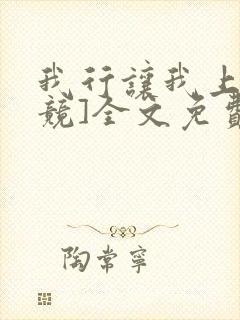 我行讓我上
競]全文免費
陶常寧